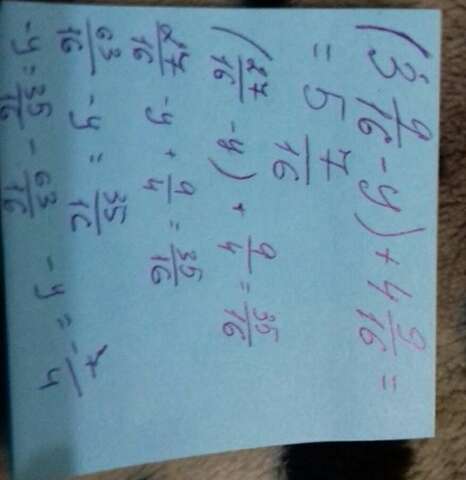 (3 9/16 - y) + 4 9/16 =
= 5 7/16
(27/16 - y) + 9/4 = 35/16
27/16 - y + 9/4 = 35/16
63/16 - y = 35/16
-y = 35/16 - 63/16 - y = -7/4